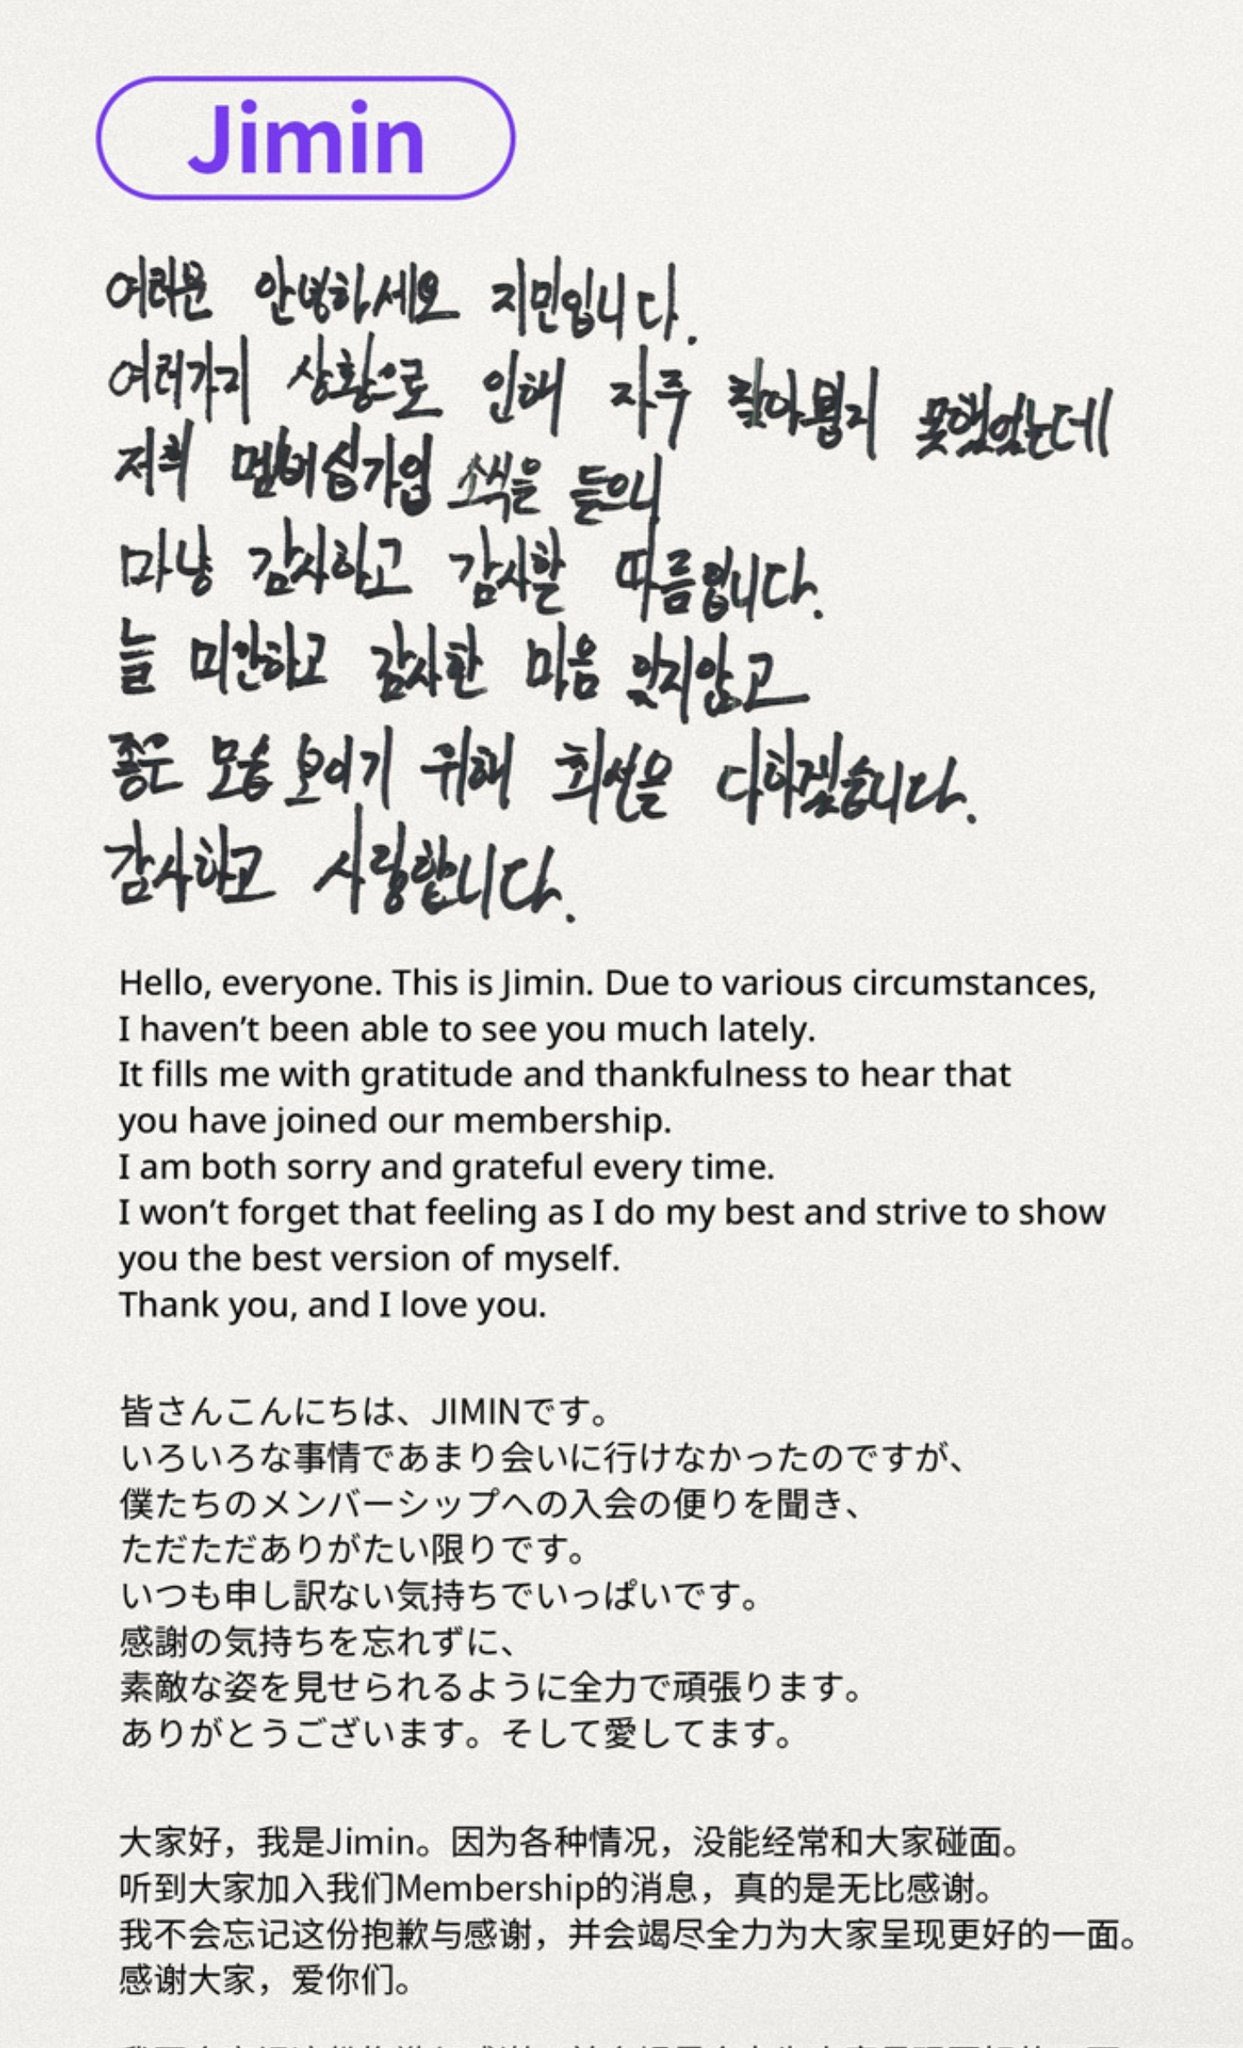 Jimin
여러분 안녕하세요 지민입니다.
여러가지 상황으로 인해 자주 찾아뵙지 못했었는데
저희 멤버쉽가입 소식을 들으니
마냥 감사하고 감사할 따름입니다.
늘 미안하고 감사한 마음 잊지않고
좋은 모습 보이기 위해 최선을 다하겠습니다.
감사하고 사랑합니다.
Hello, everyone. This is Jimin. Due to various circumstances,
I haven’t been able to see you much lately.
It fills me with gratitude and thankfulness to hear that
you have joined our membership.
I am both sorry and grateful every time.
I won’t forget that feeling as I do my best and strive to show
you the best version of myself.
Thank you, and I love you.
皆さんこんにちは、JIMINです。
いろいろな事情であまり会いに行けなかったのですが、
僕たちのメンバーシップへの入会の便りを聞き、
ただただありがたい限りです。
いつも申し訳ない気持ちでいっぱいです。
感謝の気持ちを忘れずに、
素敵な姿を見せられるように全力で頑張ります。
ありがとうございます。そして愛してます。
大家好，我是Jimin。因为各种情况，没能经常和大家碰面。
听到大家加入我们Membership的消息，真的是无比感谢。
我不会忘记这份抱歉与感谢，并会竭尽全力为大家呈现更好的一面。
感谢大家，爱你们。